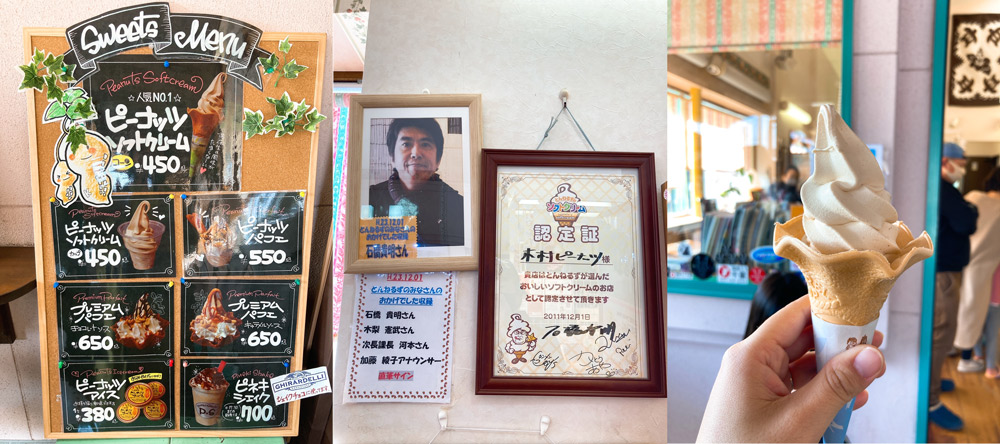 Sweets Menu
Peanuts Softcream
☆人気NO.1☆
ピーナッツ
ソフトクリーム
コーン
450
ピーナッツ
ソフトクリーム
カップ
450
ピーナッツ
パフェ
550
Premium Parfait
プレミアム
パフェ
チョコレートソース
650
Premium Parfait
プレミアム
パフェ
キャラメルソース
650
Peanuts Icecream
ピーナッツ
アイス
380
ピネキ
シェイク
700
P.C
GHIRARDELLI
H.23.12.01
とんねるずのみなさんの
おかげでした収録
石橋貴明さん
H23.12.01
とんねるずのみなさんの
おかげでした収録
石橋 貴明さん
木梨 憲武さん
次長課長 河本さん
加藤 綾子アナウンサー
直筆サイン
ソフトクリーム
認定証
木村ピーナッツ様
貴店はとんねるずが選んだ
おいしいソフトクリームのお店
として認定させて頂きます
2011年12月1日